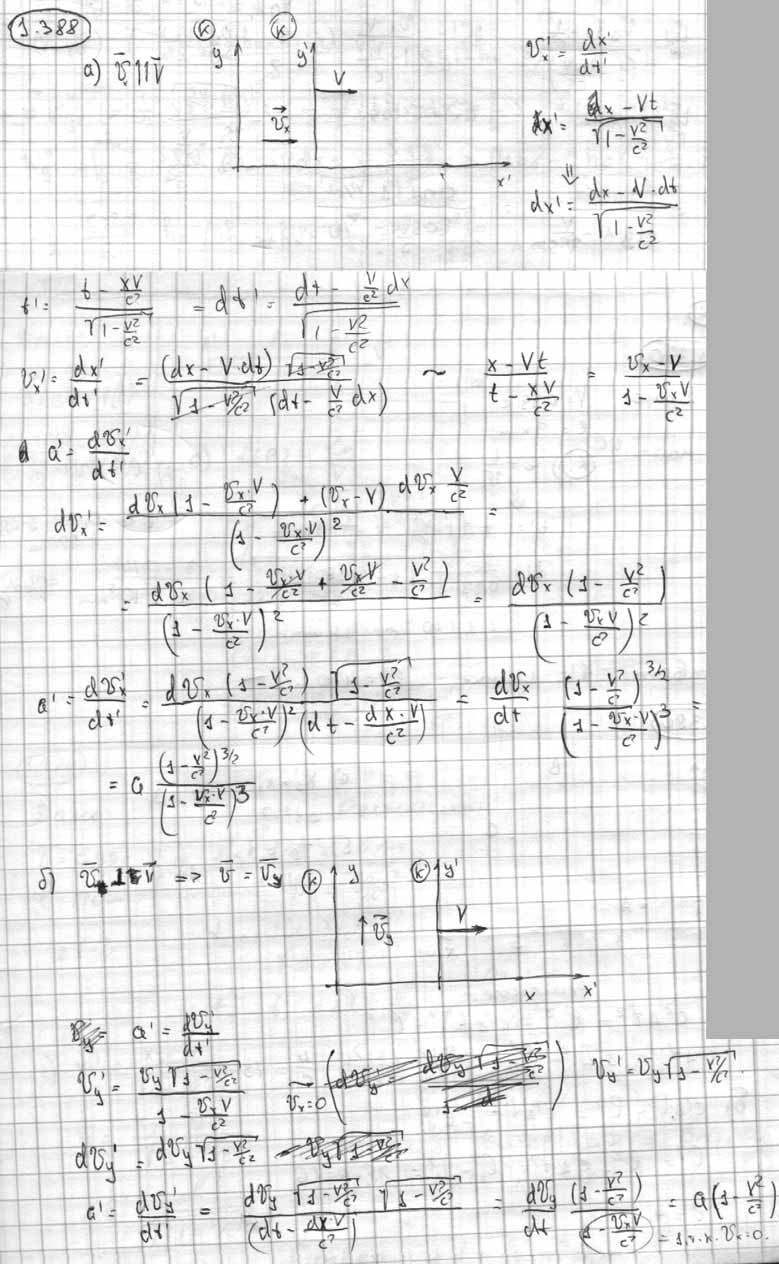 1.388
K K'
y y'
а) v̄ ↑↑ V̄
V
v⃗ₓ
x'
vₓ' = dx'/dt'
dx' = (dx - Vt)/√(1 - V²/c²)
⇓
dx' = (dx - V·dt)/√(1 - V²/c²)
t' = (t - xV/c²)/√(1 - V²/c²) = dt' = (dt - V/c² dx)/√(1 - V²/c²)
vₓ' = dx'/dt' = (dx - V·dt) √(1 - V²/c²) / (√(1 - V²/c²) (dt - V/c² dx)) ~ (x - Vt)/(t - xV/c²) = (vₓ - V)/(1 - vₓV/c²)
a' = dvₓ'/dt'
dvₓ' = (dvₓ (1 - vₓ·V/c²) + (vₓ - V) dvₓ V/c²)/(1 - vₓ·V/c²)² =
= dvₓ (1 - vₓ·V/c² + vₓV/c² - V²/c²)/(1 - vₓ·V/c²)² = dvₓ (1 - V²/c²)/(1 - vₓV/c²)²
a' = dvₓ'/dt' = dvₓ (1 - V²/c²) √(1 - V²/c²) / ((1 - vₓ·V/c²)² (dt - dx·V/c²)) = dvₓ/dt (1 - V²/c²)^(3/2)/(1 - vₓ·V/c²)³ =
= a (1 - V²/c²)^(3/2)/(1 - vₓ·V/c²)³
б) v̄ ⊥ V̄ => v̄ = v̄ᵧ
K y K' y'
↑ v̄ᵧ V
x x'
a' = dvᵧ'/dt'
vᵧ' = vᵧ √(1 - V²/c²)/(1 - vₓV/c²) ~ vₓ=0 vᵧ' = vᵧ √(1 - V²/c²)
dvᵧ' = dvᵧ √(1 - V²/c²)
a' = dvᵧ'/dt' = dvᵧ √(1 - V²/c²) √(1 - V²/c²) / (dt - dx·V/c²) = dvᵧ/dt (1 - V²/c²)/(1 - vₓV/c²) = a (1 - V²/c²)
= 1, т.к. vₓ = 0.